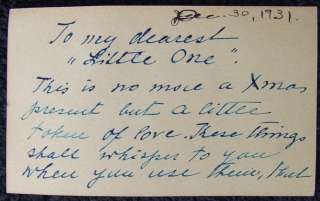 Dec. 30, 1931.
To my dearest
„Little One".
This is no more a Xmas
present but a little
token of love. These things
shall whisper to you
when you use them, that